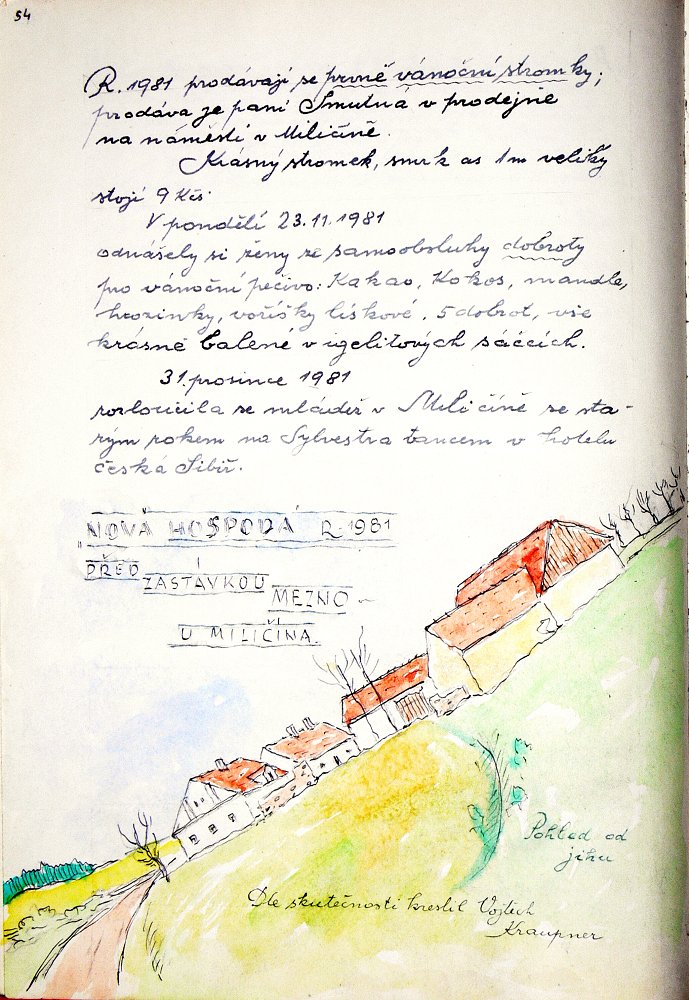 54
R. 1981 prodávají se prvně vánoční stromky;
prodáva je paní Smutná v prodejně
na náměstí v Miličíně.
Krásný stromek, smrk as 1m veliký
stojí 9 Kčs.
V pondělí 23.11.1981
odnášely si ženy ze samoobsluhy dobroty
pro vánoční pečivo: Kakao, Kokos, mandle,
hrozinky, voříšky lískové, 5 dobrot, vše
krásně balené v igelitových sáčcích.
31. prosince 1981
rozloučila se mládež v Miličíně se sta-
rým rokem na Sylvestra tancem v hotelu
česká Sibiř.
"NOVÁ HOSPODA" R. 1981
PŘED
ZASTÁVKOU
MEZNO
U MILIČÍNA.
Pohled od
jihu
Dle skutečnosti kreslil Vojtěch
Kraupner